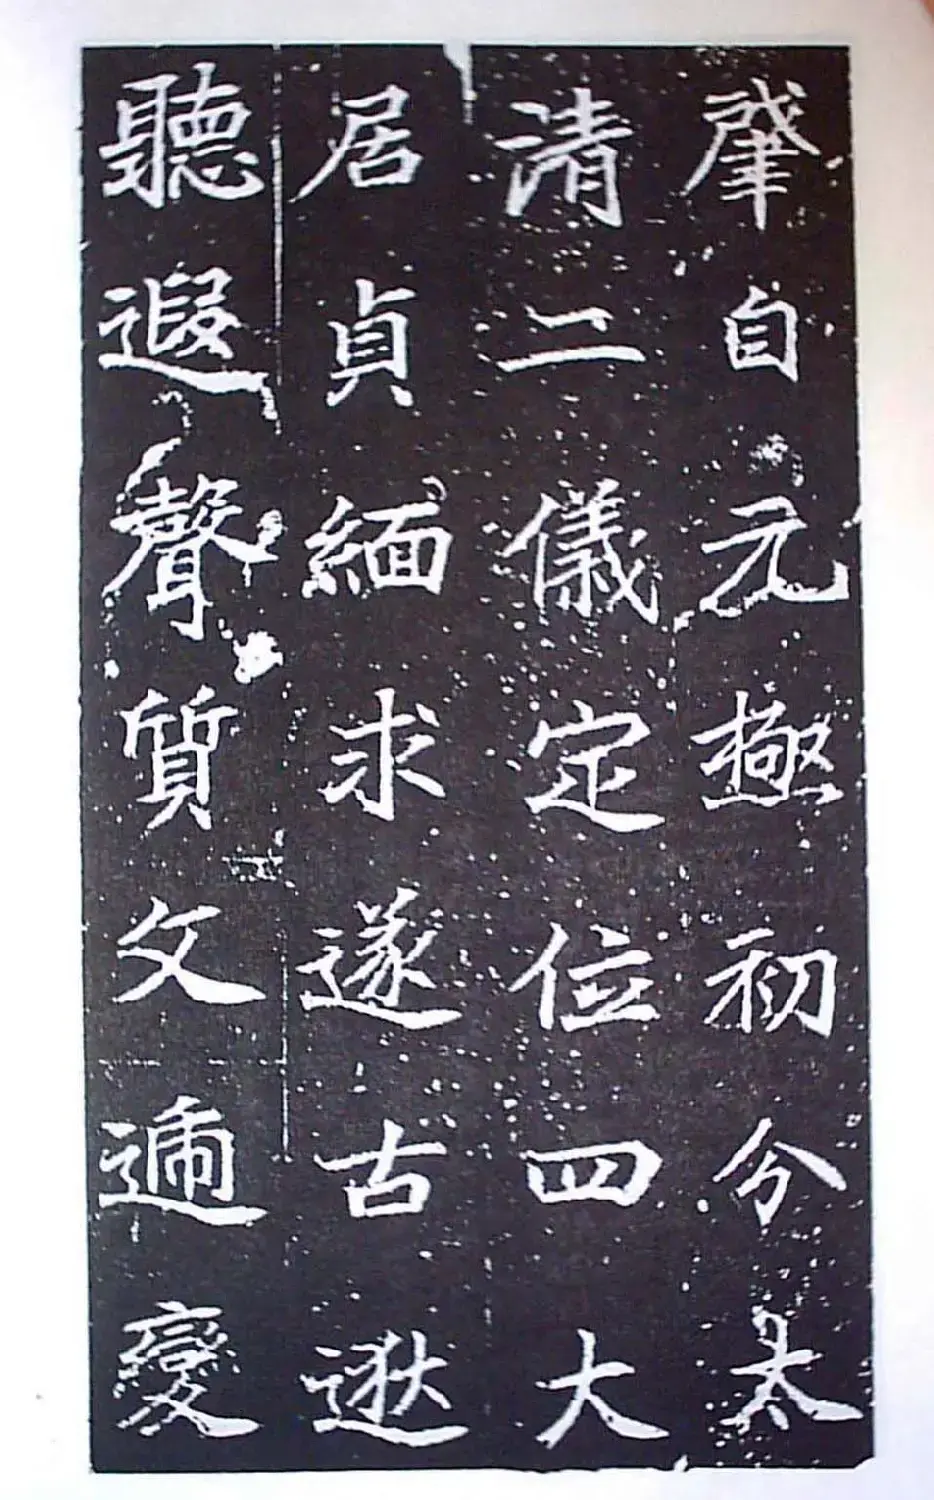 肇自元極初分太
清二儀定位四大
居貞緬求遂古逖
聽遐聲質文遞變